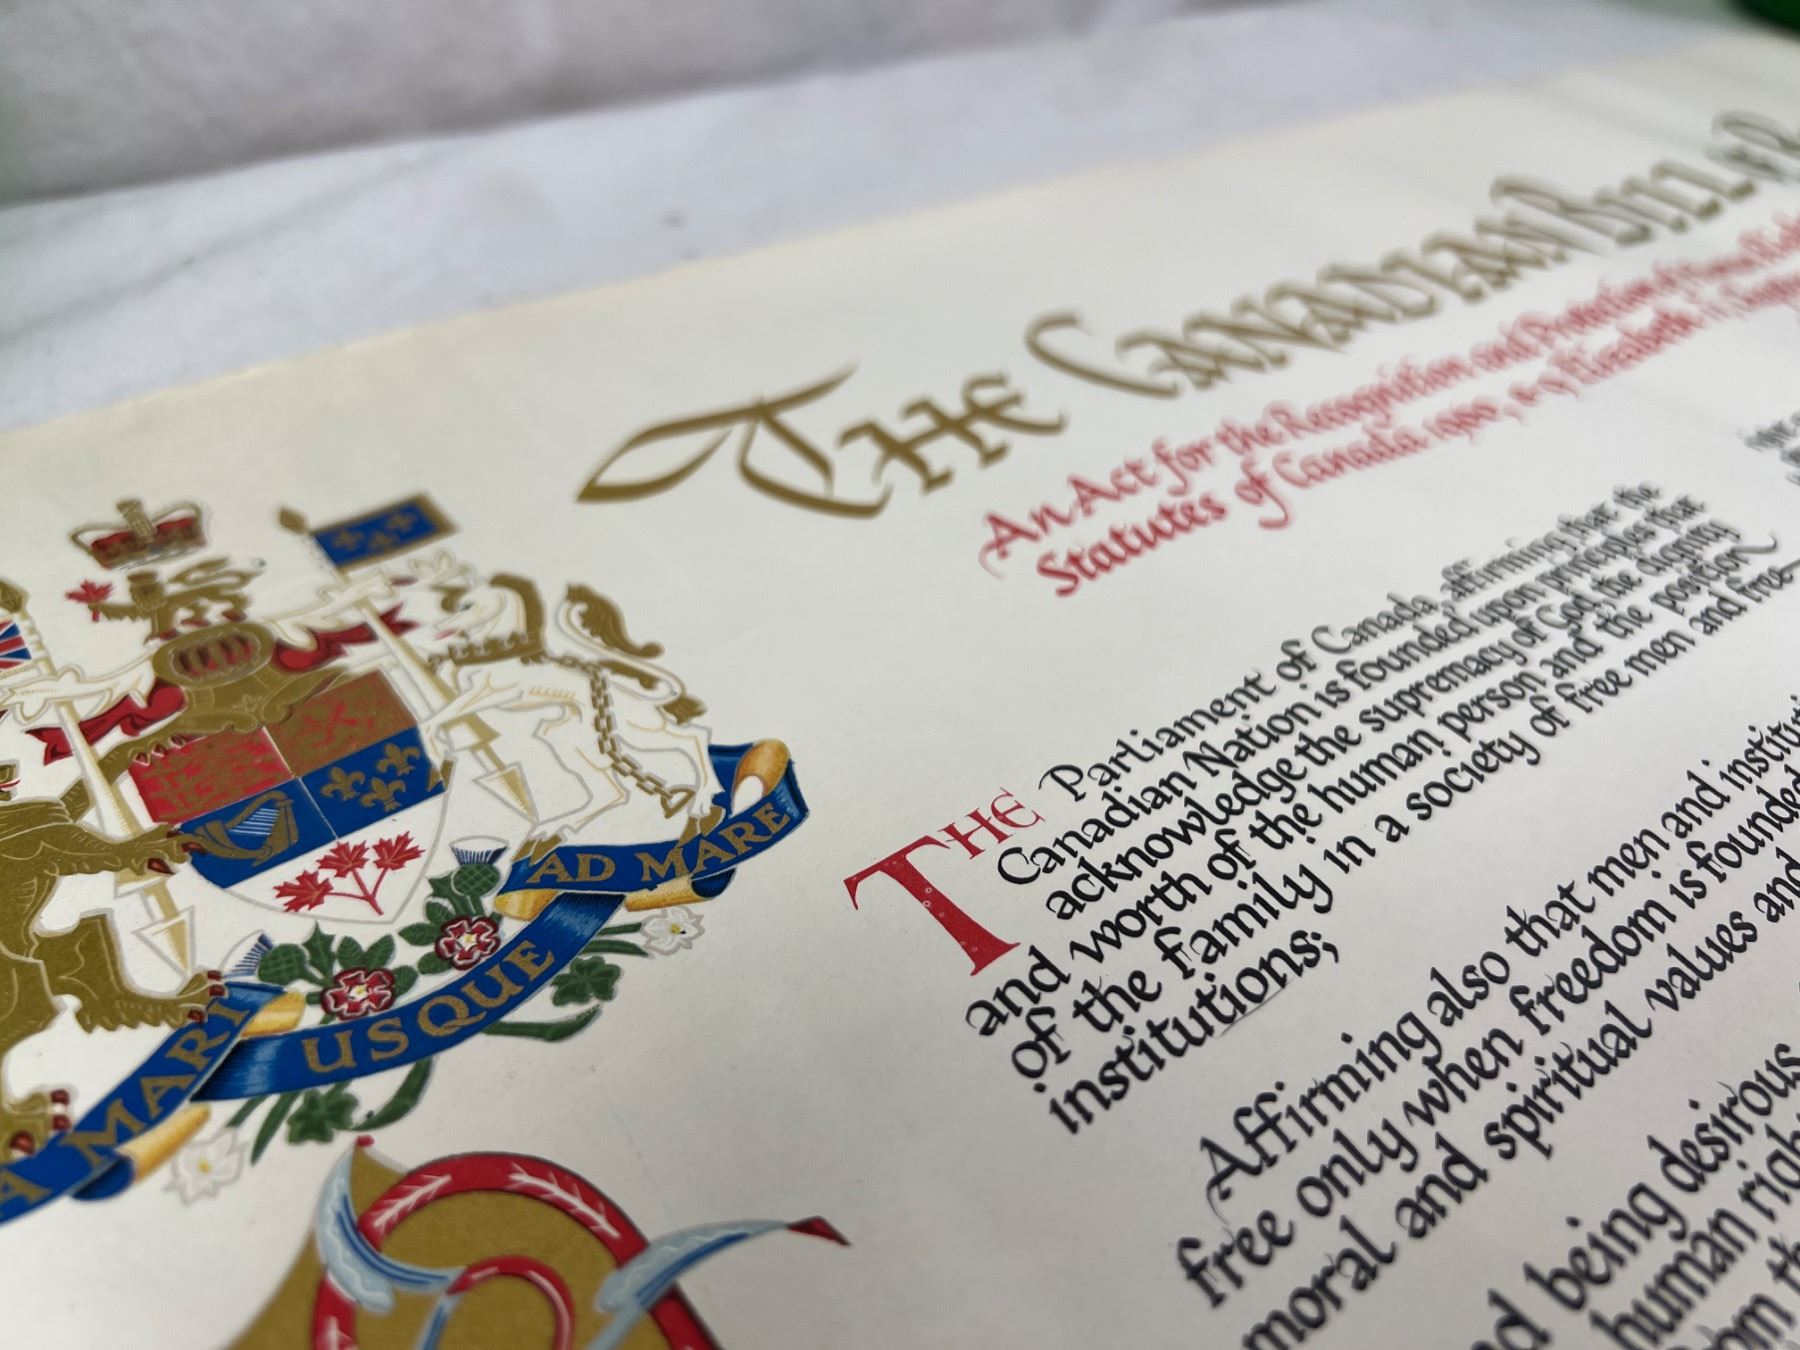 THE CANADIAN BILL OF
An Act for the Recognition and Protection of
Statutes of Canada 1960, 8-9 Elizabeth II,
THE Parliament of Canada, affirming that the
Canadian Nation is founded upon principles that
acknowledge the supremacy of God, the dignity
and worth of the human person and the position
of the family in a society of free men and free
institutions;
Affirming also that men and
free only when freedom is founded
moral and spiritual values and
being desirous
human
A MARI USQUE AD MARE